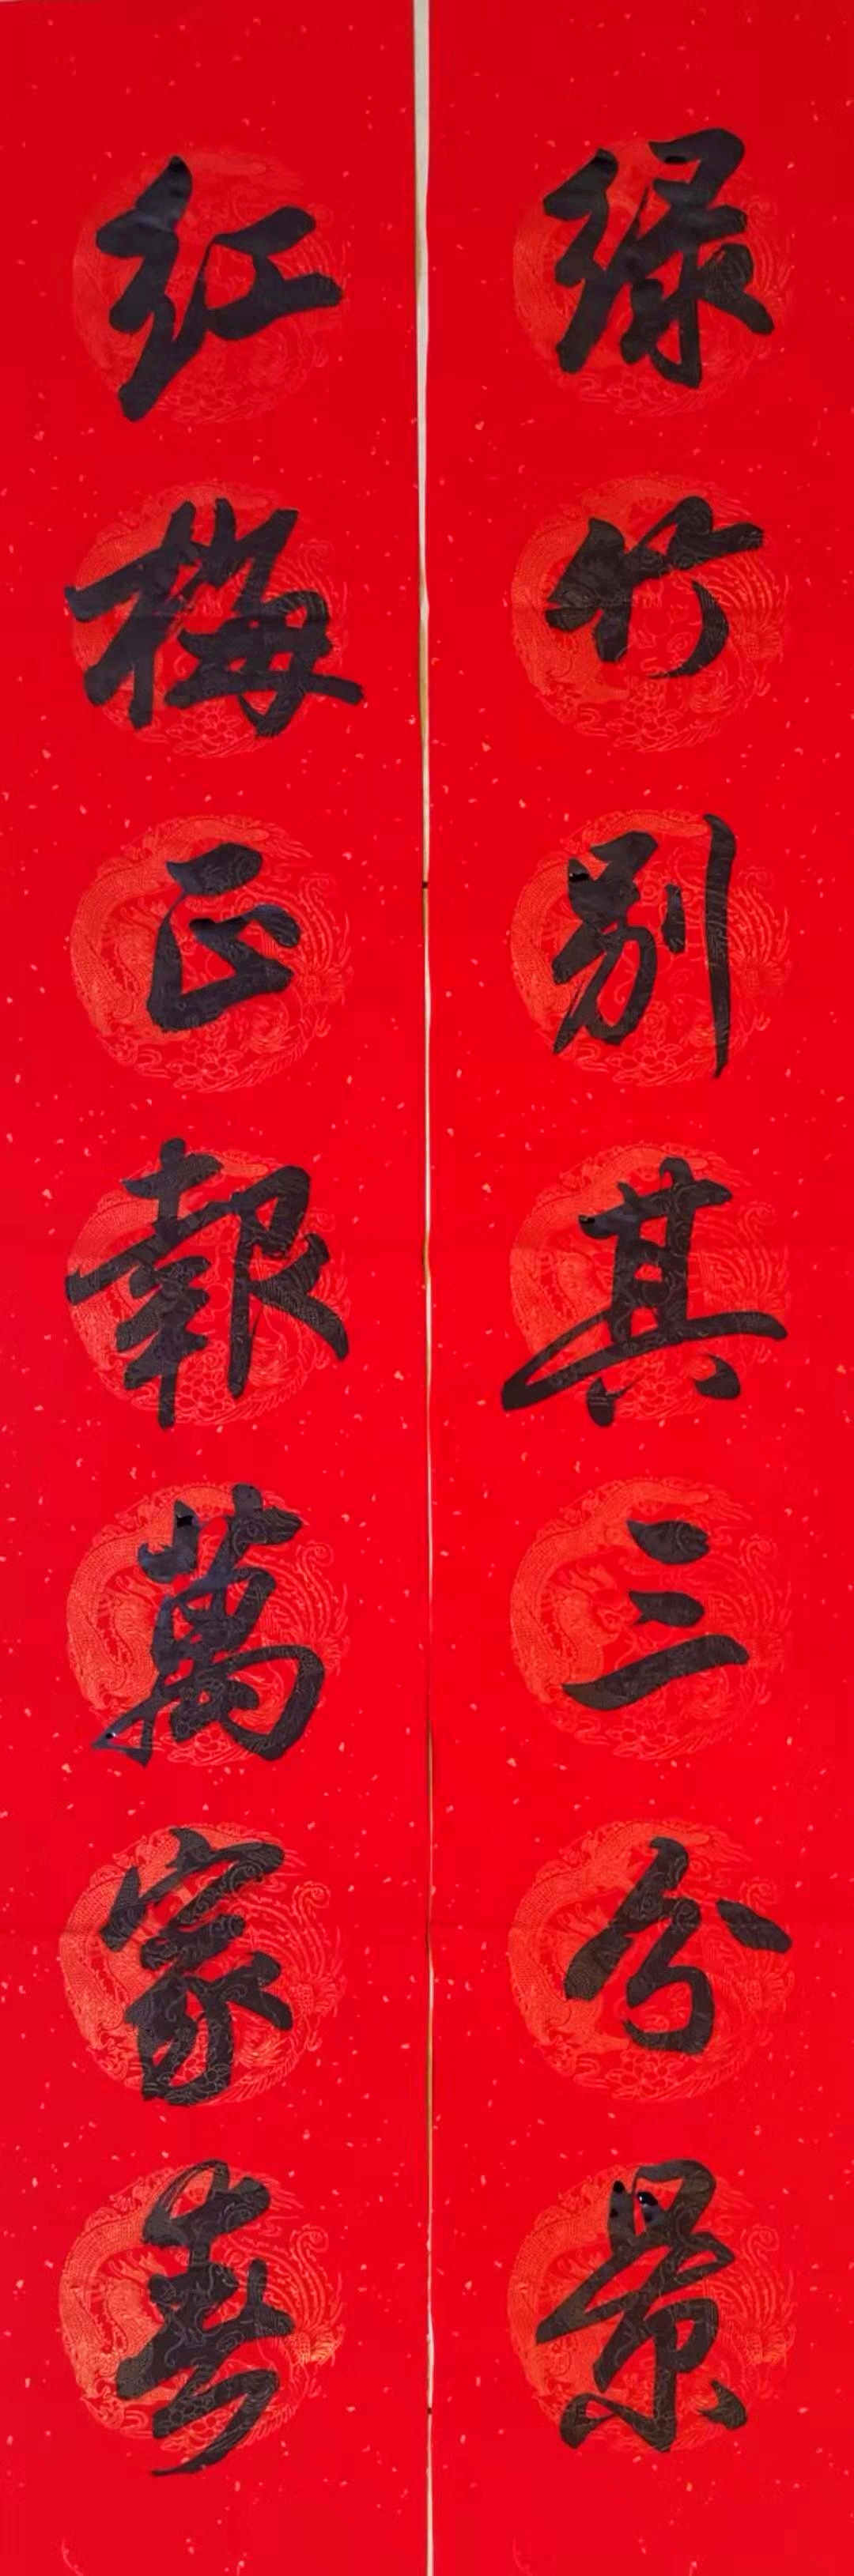 绿竹别其三分景
红梅正報萬家春